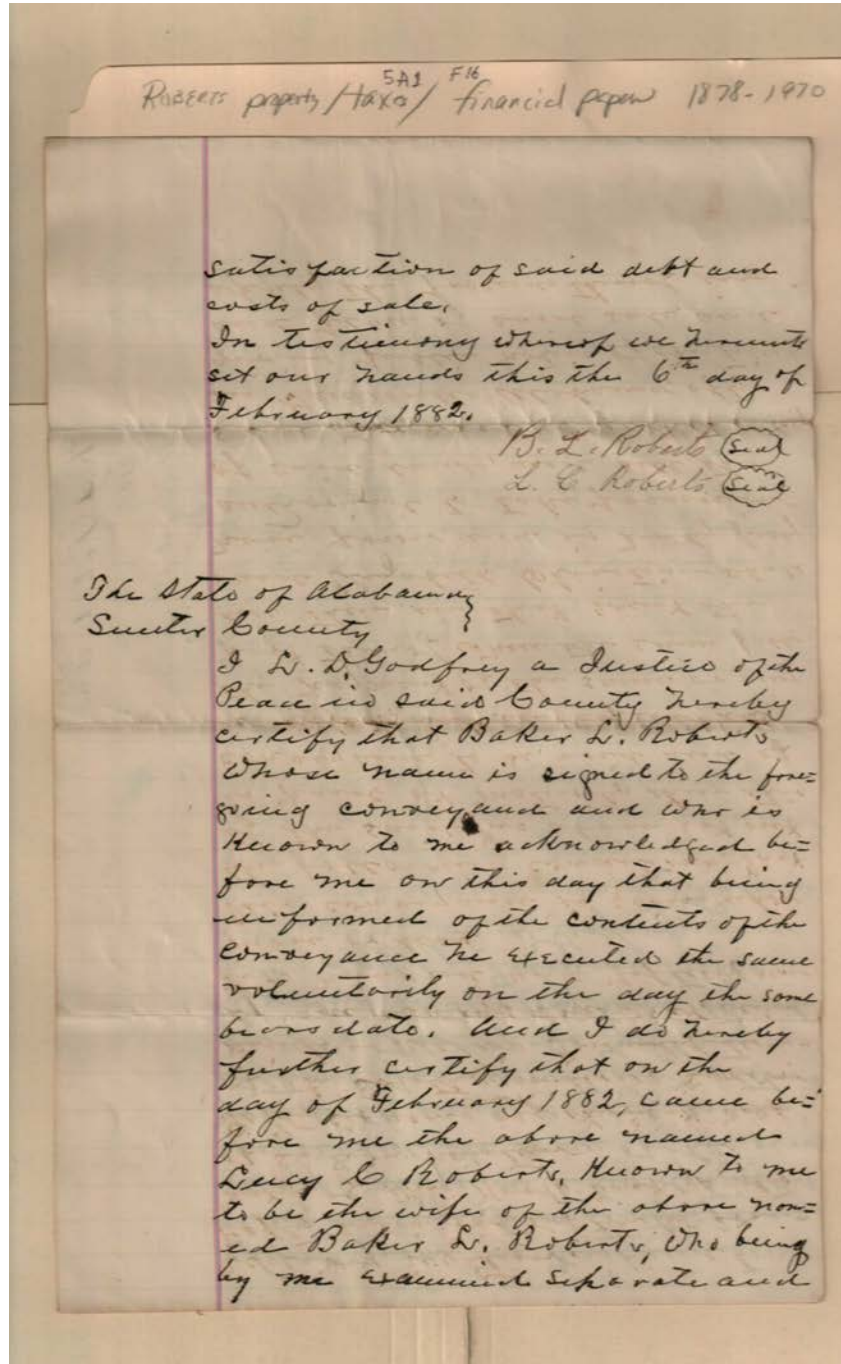 5A1 F16
Roberts property/taxes/ financial papers 1878-1970
satisfaction of said debt and
costs of sale.
In testimony whereof we hereunto
set our hands this the 6th day of
February 1882.
B. L. Roberts (Seal)
L. C Roberts (Seal)
The State of Alabama }
Sumter County
I L. D. Godfrey a Justice of the
Peace in said County hereby
certify that Baker L. Roberts
whose name is signed to the fore=
going conveyance and who is
Known to me acknowledged be=
fore me on this day that being
informed of the contents of the
conveyance he executed the same
voluntarily on the day the same
bears date. And I do hereby
further certify that on the
day of February 1882, came be=
fore me the above named
Lucy C Roberts, Known to me
to be the wife of the above nam=
ed Baker L. Roberts, who being
by me examined separate and